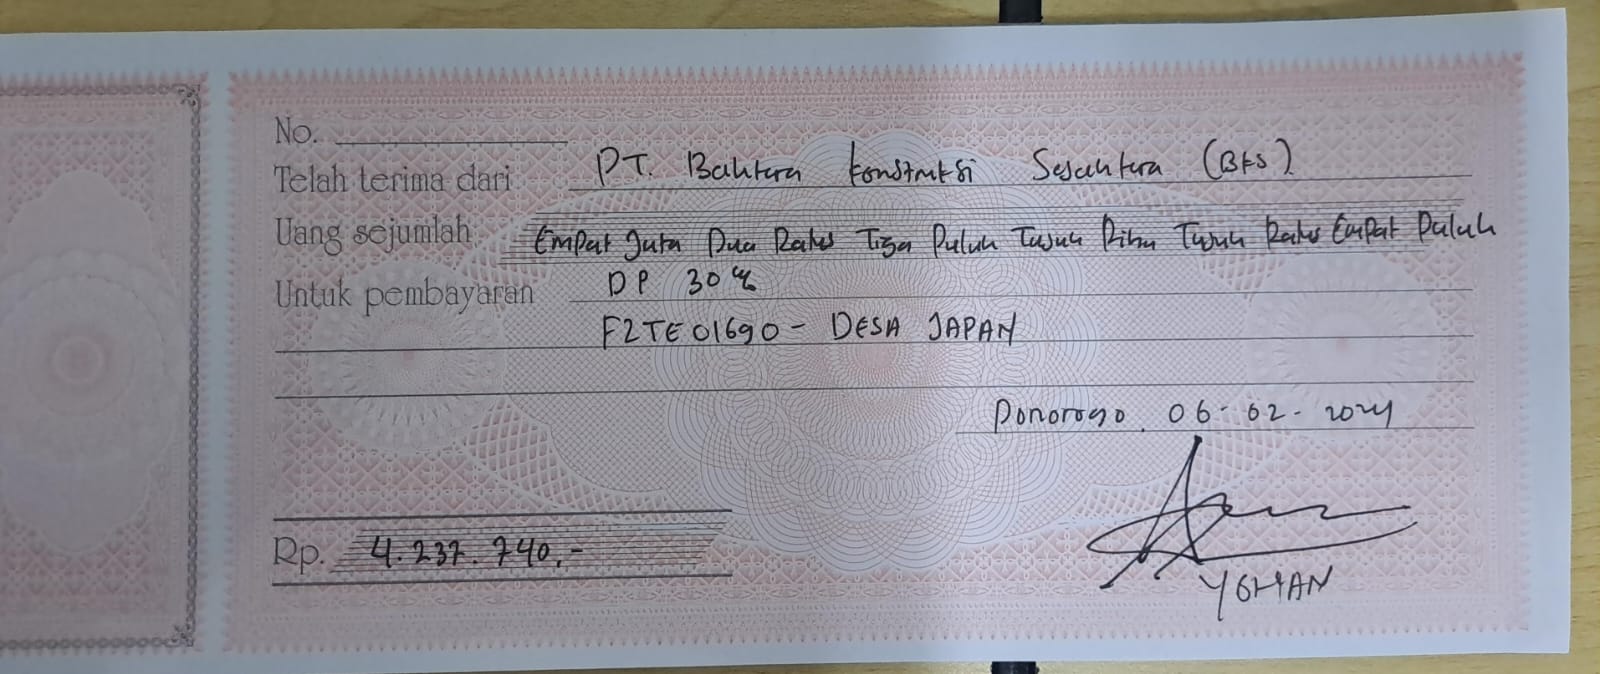 No.
Telah terima dari PT. Bahtera Konstruksi Sejahtera (BKS)
Uang sejumlah Empat Juta Dua Ratus Tiga Puluh Tujuh Ribu Tujuh Ratus Empat Puluh
Untuk pembayaran DP 30%
F2TE01690 - DESA JAPAN
Ponorogo, 06-02-2024
Rp. 4.237.740,-